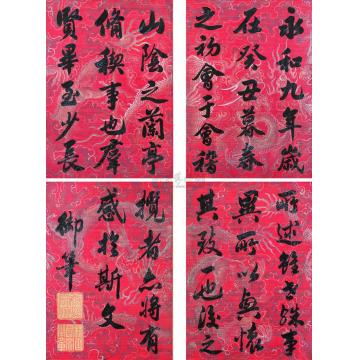 永和九年歲
在癸丑暮春
之初會于會稽
山陰之蘭亭
脩稧事也羣
賢畢至少長
所述雖世殊事
異所以興懷
其致一也後之
攬者亦將有
感於斯文
御筆